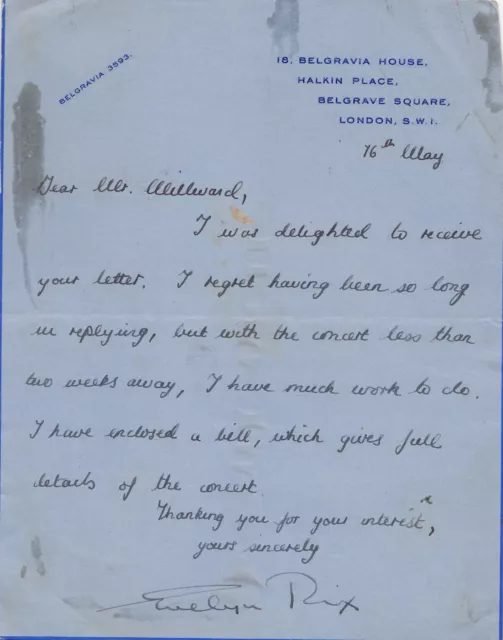 BELGRAVIA 3593.
18, BELGRAVIA HOUSE,
HALKIN PLACE,
BELGRAVE SQUARE,
LONDON, S.W.1.
16th May
Dear Mr. Millward,
I was delighted to receive
your letter. I regret having been so long
in replying, but with the concert less than
two weeks away, I have much work to do.
I have enclosed a bill, which gives full
details of the concert.
Thanking you for your interest,
yours sincerely
Evelyn Rix